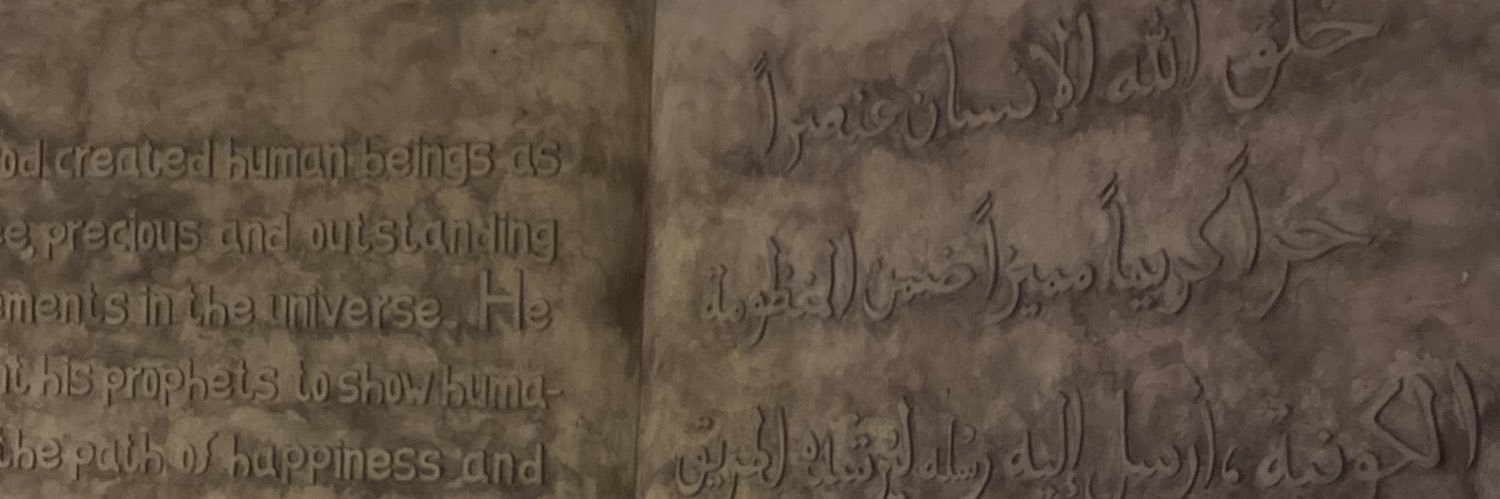 od created human beings as
e, precious and outstanding
ements in the universe. He
nt his prophets to show huma-
the path of happiness and
خلق الله الإنسان عنصراً
حراً كريماً مميزاً ضمن المنظومة
الكونية، أرسل إليه رسله لترشده لطريق